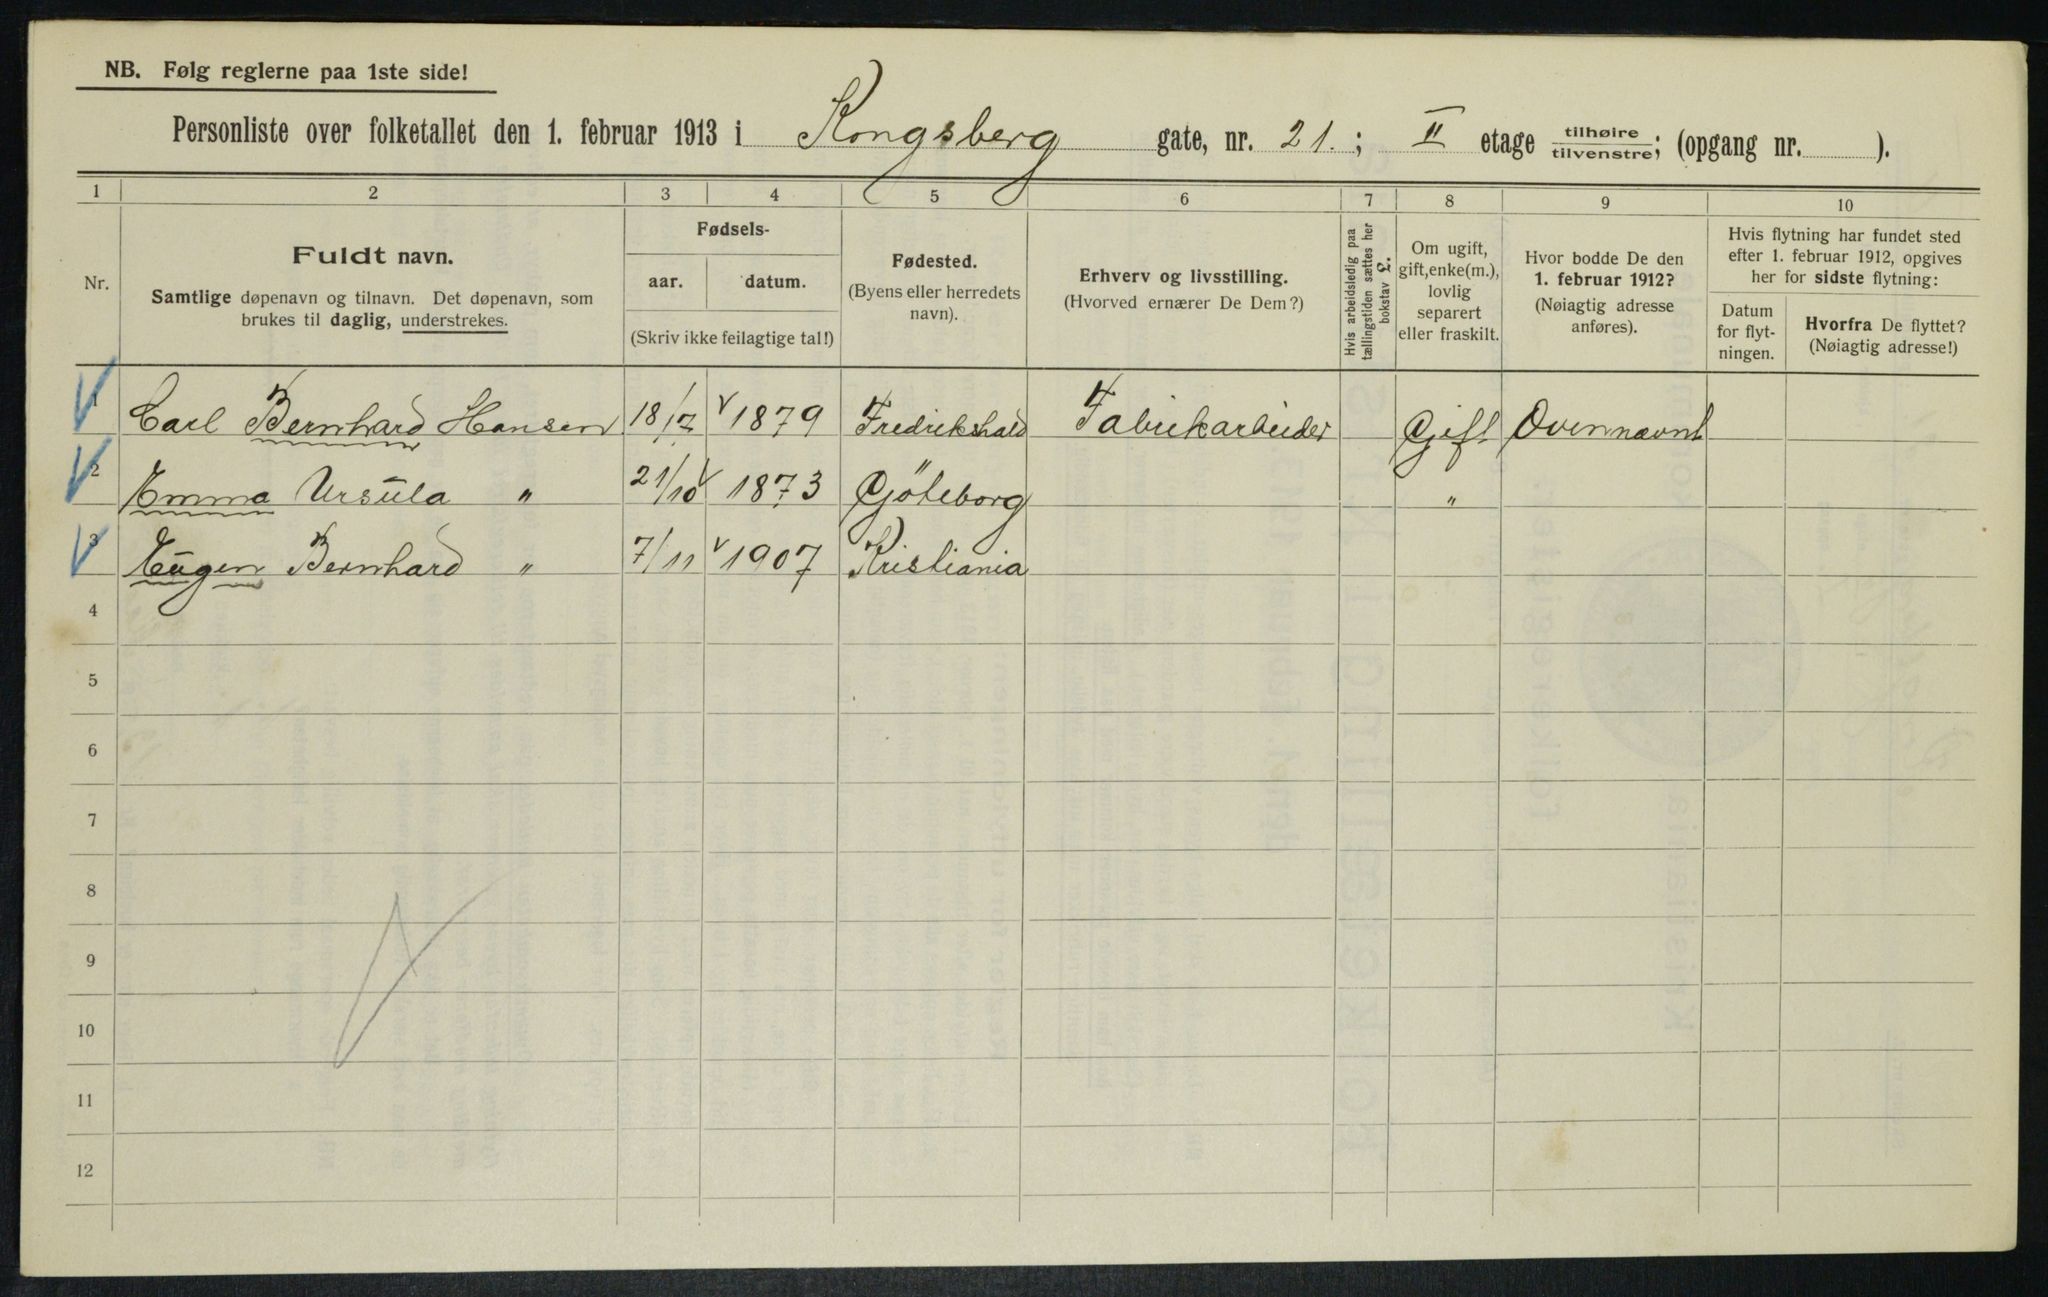 NB. Følg reglerne paa 1ste side!
Personliste over folketallet den 1. februar 1913 i Kongsberg gate, nr. 21.; II etage tilhøire / tilvenstre; (opgang nr. ).
1 2 3 4 5 6 7 8 9 10
Nr.
Fuldt navn.
Samtlige døpenavn og tilnavn. Det døpenavn, som
brukes til daglig, understrekes.
Fødsels-
aar. datum.
(Skriv ikke feilagtige tal!)
Fødested.
(Byens eller herredets
navn).
Erhverv og livsstilling.
(Hvorved ernærer De Dem?)
Hvis arbeidsledig paa
tællingstiden sættes her
bokstav £.
Om ugift,
gift, enke(m.),
lovlig
separert
eller fraskilt.
Hvor bodde De den
1. februar 1912?
(Nøiagtig adresse
anføres).
Hvis flytning har fundet sted
efter 1. februar 1912, opgives
her for sidste flytning:
Datum
for flyt-
ningen.
Hvorfra De flyttet?
(Nøiagtig adresse!)
1 Carl Bernhard Hansen 18/7 1879 Fredrikshald Fabrikarbeider Gift Ovennævnt
2 Emma Ursula " 21/10 1873 Göteborg "
3 Eugen Bernhard " 7/11 1907 Kristiania
4
5
6
7
8
9
10
11
12